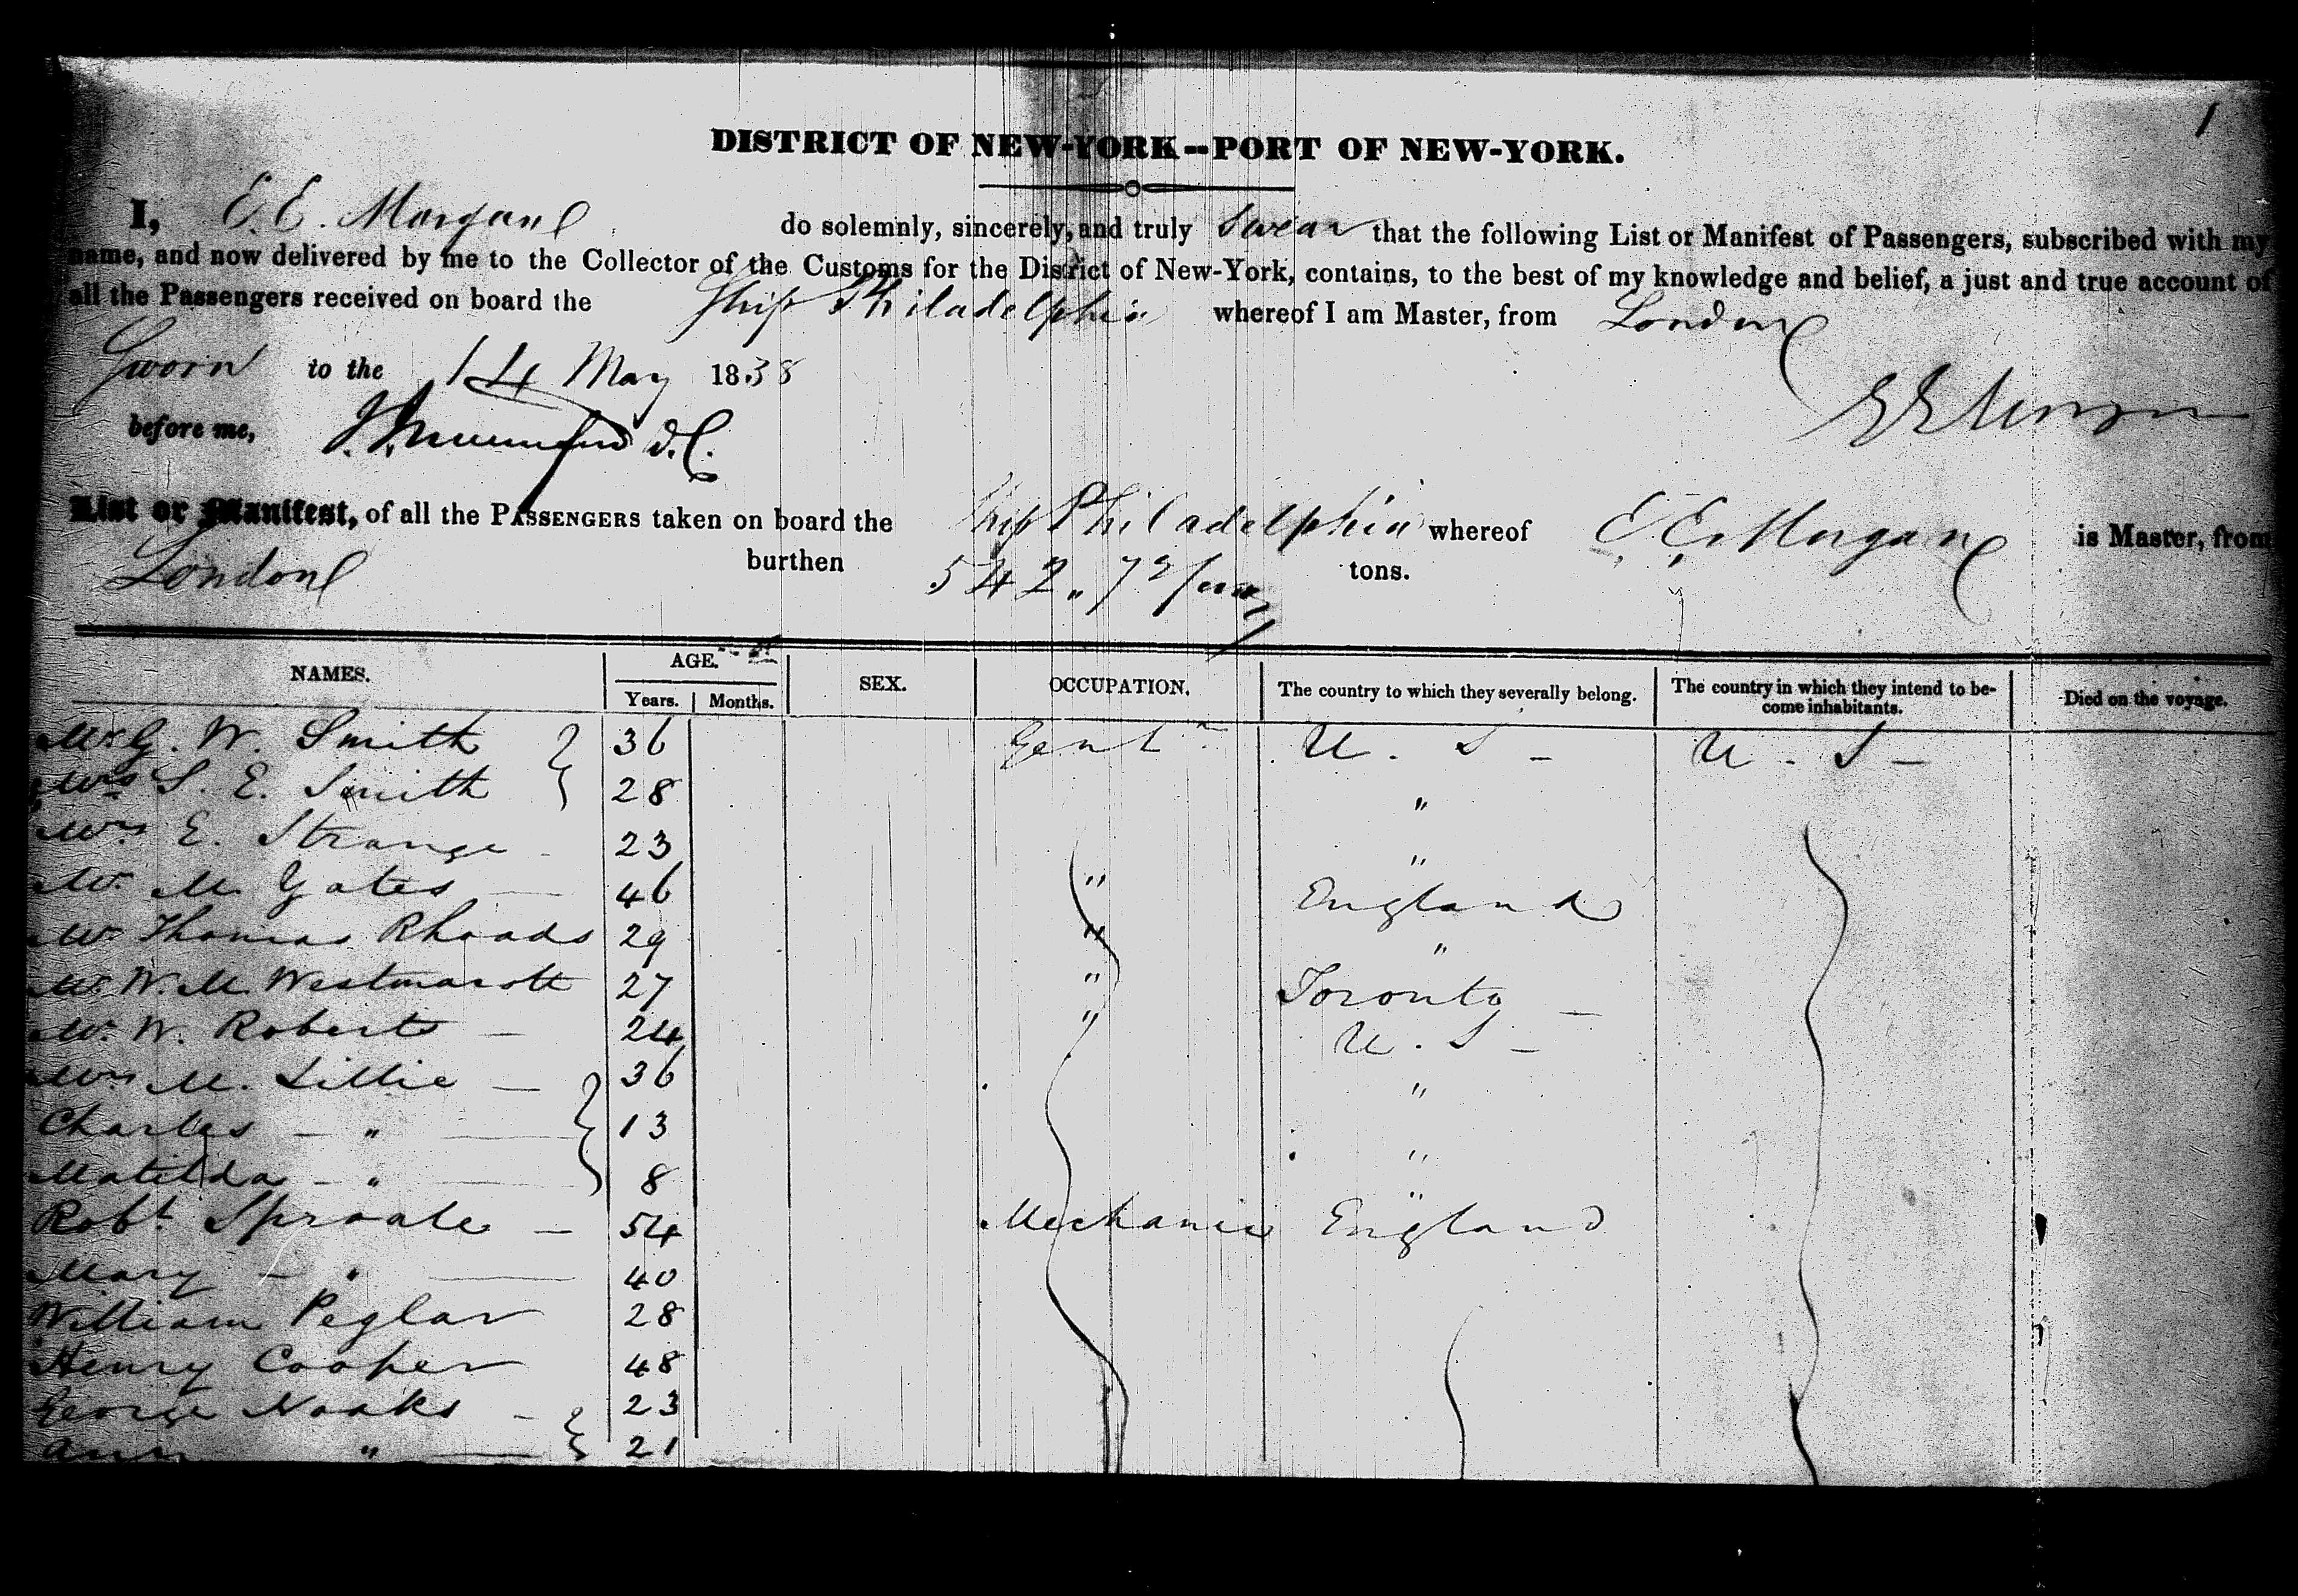 1
DISTRICT OF NEW-YORK--PORT OF NEW-YORK.
I, E. E. Morgan do solemnly, sincerely, and truly Swear that the following List or Manifest of Passengers, subscribed with my
name, and now delivered by me to the Collector of the Customs for the District of New-York, contains, to the best of my knowledge and belief, a just and true account of
all the Passengers received on board the Ship Philadelphia whereof I am Master, from London
Sworn to the 14 May 1838
before me, D.C.
E E Morgan
List or Manifest, of all the PASSENGERS taken on board the Ship Philadelphia whereof E. E. Morgan is Master, from
London burthen 542 „ 72/ tons.
NAMES. AGE. SEX. OCCUPATION. The country to which they severally belong. The country in which they intend to be- Died on the voyage.
Years. Months. come inhabitants.
Mr G. W. Smith 36 Gentn U. S - U. S -
Mrs S. E. Smith 28 "
Mrs E. Strange - 23 "
Mr M Yates — 46 " England
Mr Thomas Rhoads 29 " "
Mr W. M. Westmarott 27 " Toronto —
Mr W. Roberts — 24 " U. S -
Mrs M. Lillie — 36 "
Charles — " — 13 "
Matilda — " — 8 "
Robt Sproale — 54 Mechanic England
Mary — " — 40
William Peglar 28
Henry Cooper 48
George Nooks - 23
Ann " — 21